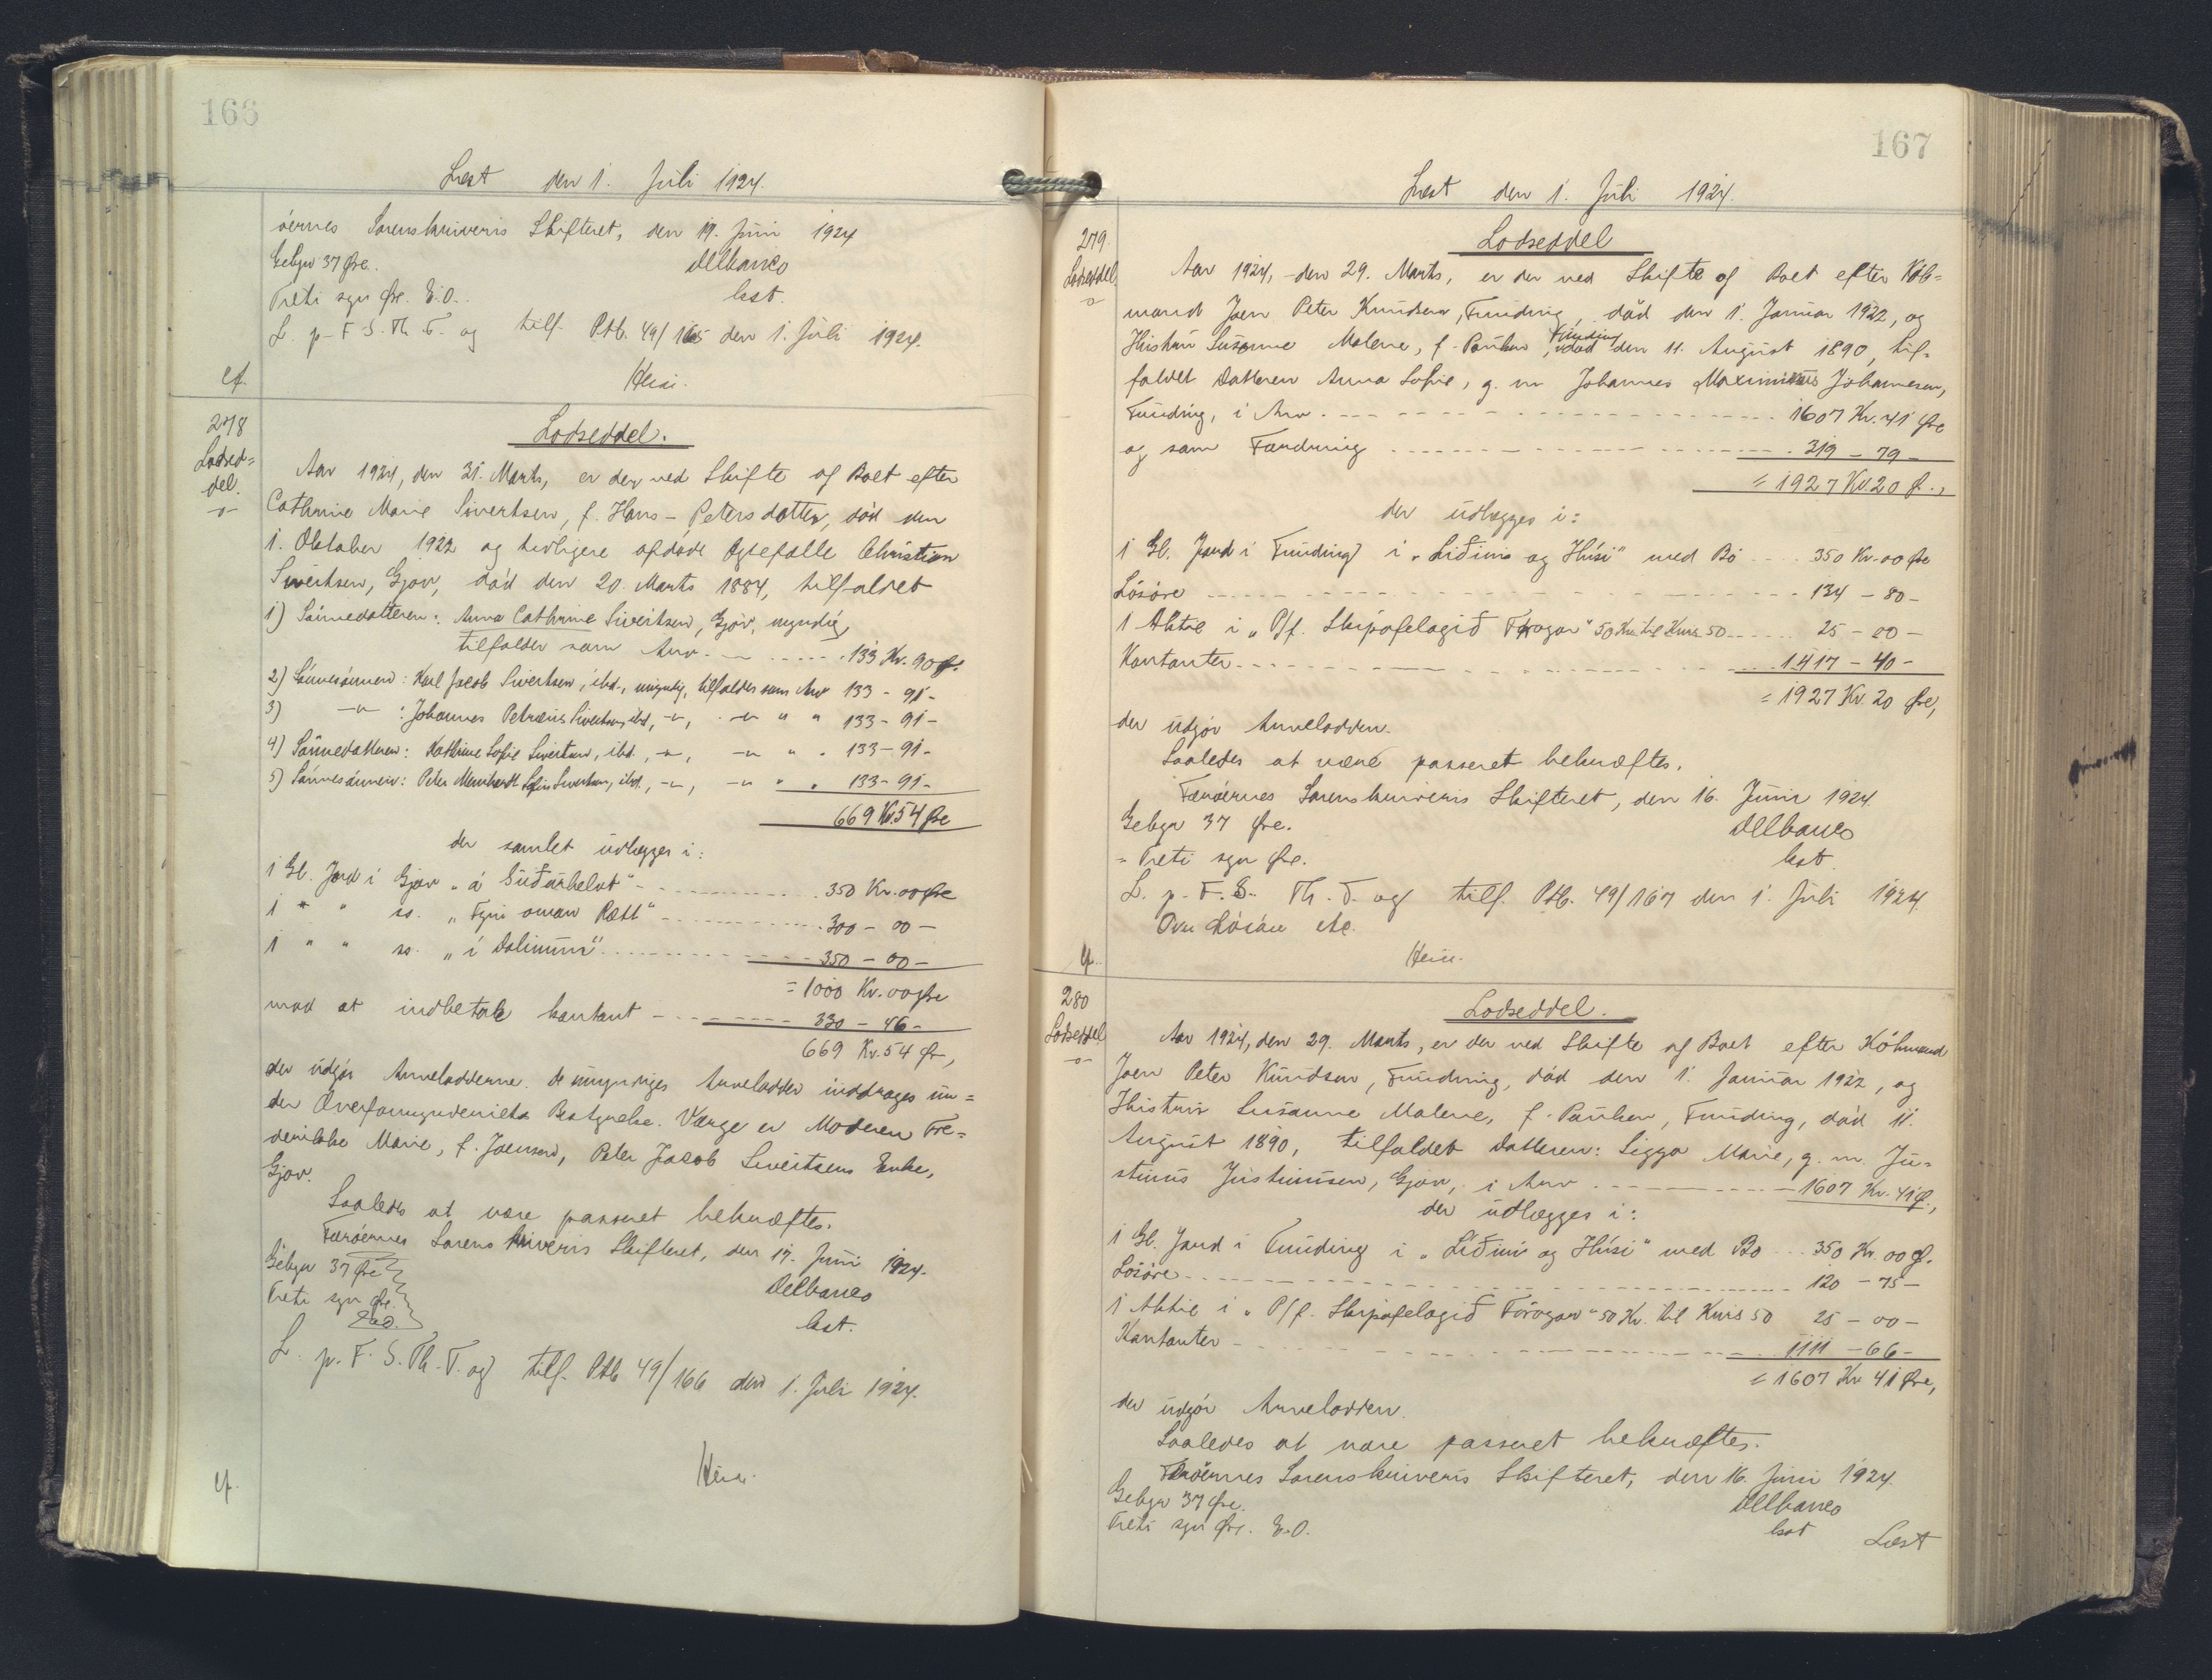 166
Læst den 1. Juli 1924.
öernes Sorenskriveris Skifteret, den 19. Juni 1924
Gebyr 37 Øre. Delbanco
Treti syv Øre. E.O. kst.
L. p. F. S. Th. T. og tilf. Ptb. 49/165 den 1. Juli 1924.
cf. Heise.
278
Lodsed=
del.
Lodseddel.
Aar 1924, den 31. Marts, er der ved Skifte af Boet efter
Cathrine Marie Sivertsen, f. Hans-Petersdatter, död den
1. Oktober 1922 og tidligere afdöde Ægtefælle Christian
Sivertsen, Gjov, död den 20. Marts 1884, tilfaldet
1) Sönnedatteren: Anna Cathrine Sivertsen, Gjov, myndig,
tilfalder som Arv 133 Kr. 90 Ø.
2) Sönnesönnen: Karl Jacob Sivertsen, ibd., umyndig, tilfalder som Arv 133 - 91 -
3) -"- : Johannes Petræus Sivertsen, ibd, -"-, -"- " " 133 - 91 -
4) Sönnedatteren: Kathrine Sofie Sivertsen, ibd., -"-, -"- " " 133 - 91 -
5) Sönnesönnen: Peter Meinhardt Sofus Sivertsen, ibd., -"-, -"- " " 133 - 91 -
669 Kr. 54 Øre
der samlet udlægges i:
1 Gl. Jord i Gjov "á Suðurhelvt" 350 Kr. 00 Øre
1 " " ss. "Fyri oman Rætt" 300 - 00 -
1 " " ss. "í Dalinum" 350 - 00 -
= 1000 Kr. 00 Øre
mod at indbetale kontant 330 - 46 -
669 Kr. 54 Ør,
der udgör Arvelodderne. De umyndiges Arvelodder inddrages un=
der Overformynderiets Bestyrelse. Værge er Moderen Fre=
derikke Marie, f. Joensen, Peter Jacob Sivertsens Enke,
Gjov.
Saaledes at være passeret bekræftes.
Færöernes Sorenskriveris Skifteret, den 17. Juni 1924.
Gebyr 37 Øre Delbanco
Treti syv Øre. kst.
E.O.
L. p. F. S. Th. T. og tilf. Ptb 49/166 den 1. Juli 1924.
cf. Heise.
167
Læst den 1. Juli 1924.
279.
Lodseddel
Lodseddel
Aar 1924, den 29. Marts, er der ved Skifte af Boet efter Köb=
mand Joen Peter Knudsen, Funding, död den 1. Januar 1922, og
Hustru Susanne Malene, f. Poulsen, Funding, död den 11. August 1890, til=
faldet Datteren Anna Sofie, g. m. Johannes Maximinus Johannesen,
Funding, i Arv 1607 Kr. 41 Øre
og som Fordring 319 - 79 -
= 1927 Kr. 20 Ø.,
der udlægges i:
1 Gl. Jord i Funding í "Liðini og Húsi" med Bö 350 Kr. 00 Øre
Lösöre 134 - 80 -
1 Aktie i "P/f. Skipafelagið Föroyar" 50 Kr. til Kurs 50 25 - 00 -
Kontanter 1417 - 40 -
= 1927 Kr. 20 Øre,
der udgör Arvelodden.
Saaledes at være passeret bekræftes.
Færöernes Sorenskriveris Skifteret, den 16. Juni 1924.
Gebyr 37 Øre. Delbanco
= Treti syv Øre. kst.
L. p. F. S. Th. T. og tilf. Ptb. 49/167 den 1. Juli 1924.
Ovn Lösöre etc.
cf. Heise.
280
Lodseddel
Lodseddel.
Aar 1924, den 29. Marts, er der ved Skifte af Boet efter Köbmand
Joen Peter Knudsen, Funding, död den 1. Januar 1922, og
Hustru Susanne Malene, f. Poulsen, Funding, död 11.
August 1890, tilfaldet Datteren: Sigga Marie, g. m. Ju=
stinus Justinussen, Gjov, i Arv 1607 Kr. 41 Ø.,
der udlægges i:
1 Gl. Jord i Funding í "Liðini og Húsi" med Bö 350 Kr. 00 Ø.
Lösöre 120 - 75 -
1 Aktie i "P/f. Skipafelagið Föroyar" 50 Kr. til Kurs 50 25 - 00 -
Kontanter 1111 - 66 -
= 1607 Kr 41 Øre,
der udgör Arvelodden.
Saaledes at være passeret bekræftes.
Færöernes Sorenskriveris Skifteret, den 16. Juni 1924.
Gebyr 37 Øre. Delbanco
Treti syv Øre. E.O. kst
Læst